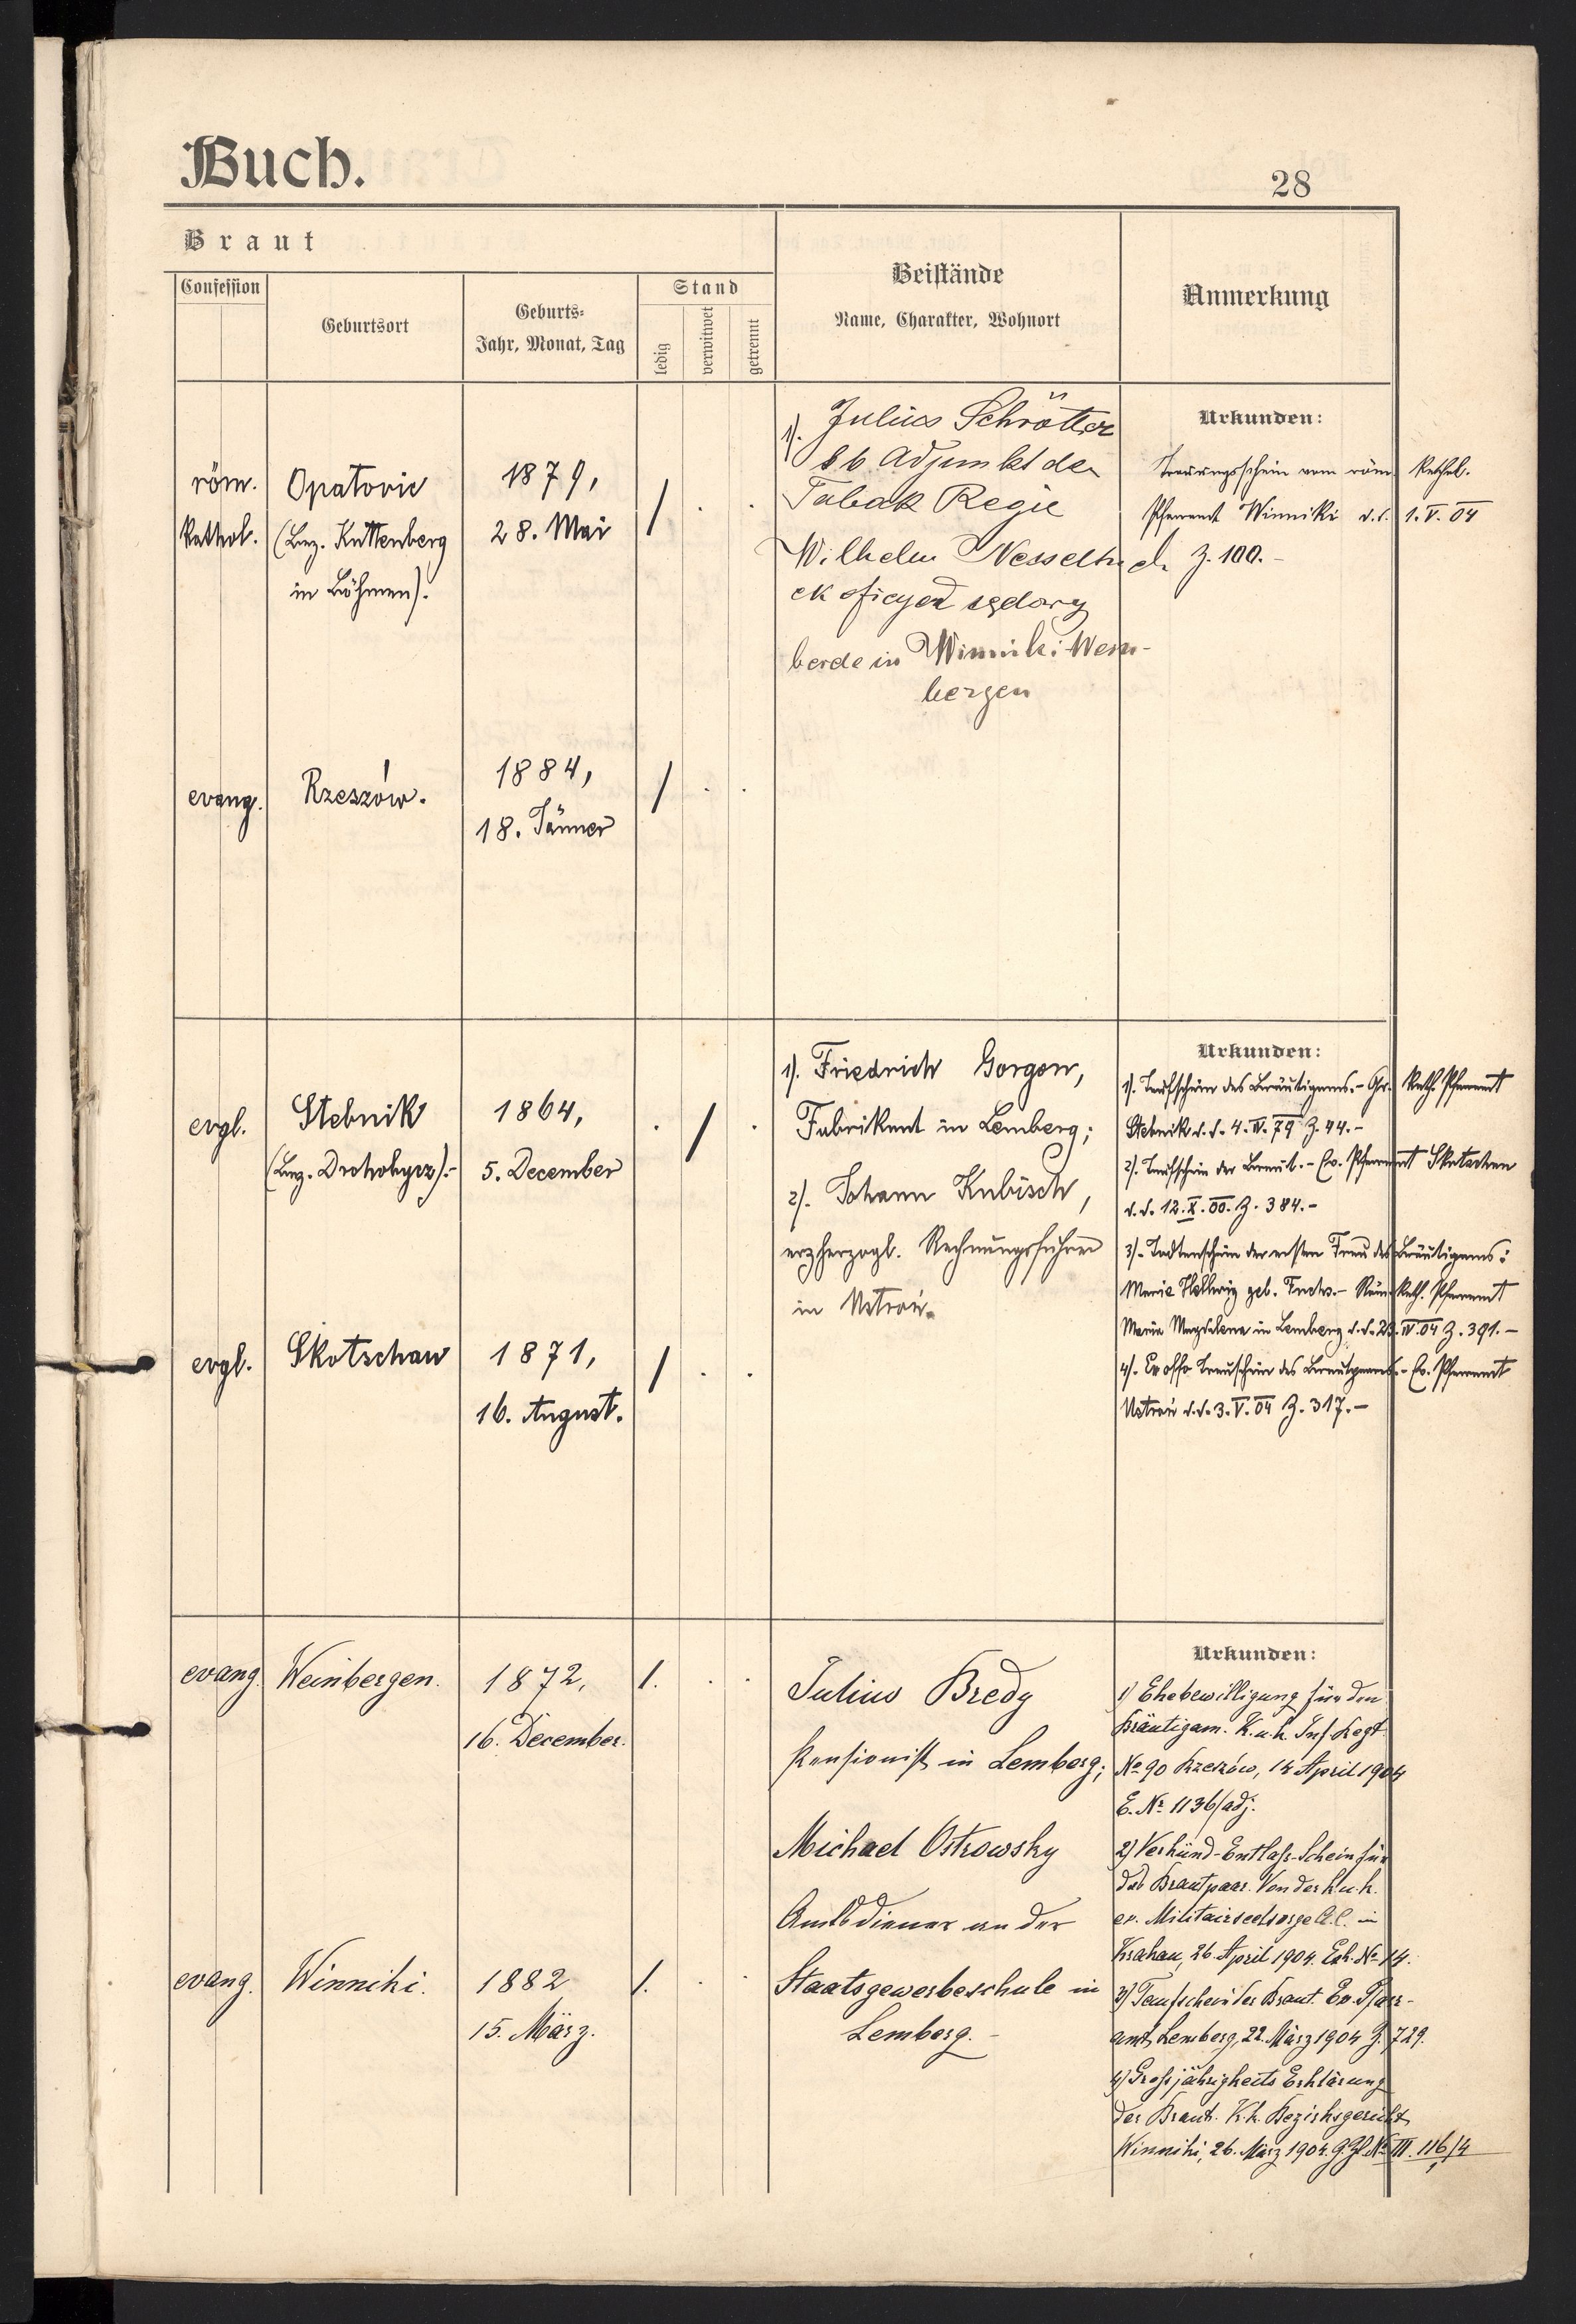 Buch.
28
Braut
Confession
Geburtsort
Geburts-
Jahr, Monat, Tag
Stand
ledig
verwitwet
getrennt
Beistände
Name, Charakter, Wohnort
Anmerkung
röm.
kathol.
Opatovic
(Bez. Kuttenberg
in Böhmen).
1879,
28. Mai
/ . .
1). Julius Schrötter
Adjunkt der
Tabak Regie
Wilhelm
in Winniki Wein-
bergen
Urkunden:
Trauungsschein vom röm. kathol.
Pfarramt Winniki d.d. 1. V. 04
Z. 100.-
evang.
Rzeszów.
1884,
18. Jänner
/ . .
evgl.
Stebnik
(Bez. Drohobycz).-
1864,
5. December
. / .
1). Friedrich Gorgon,
Fabrikant in Lemberg;
2). Johann Kubisch,
erzherzogl. Rechnungsführer
in Ustroń.
Urkunden:
1). Taufschein des Bräutigams.- Gr. kath. Pfarramt
Stebnik d.d. 4. IV. 79 Z. 44.-
2). Taufschein der Braut.- Ev. Pfarramt Skotschau
d.d. 12. X. 00. Z. 384.-
3). Todtenschein der ersten Frau des Bräutigams:
Maria Hellwig geb. Fuchs.- Röm. kath. Pfarramt
Maria Magdalena in Lemberg d.d. 23. IV. 04 Z. 391.-
4). Ex offo Trauschein des Brautpaares.- Ev. Pfarramt
Ustroń d.d. 3. V. 04 Z. 317.-
evgl.
Skotschau
1871,
16. August.
/ . .
evang.
Weinbergen.
1872,
16. December.
/. . .
Julius Bredy
Pensionist in Lemberg;
Michael Ostrowsky
Amtsdiener an der
Staatsgewerbeschule in
Lemberg.-
Urkunden:
1) Ehebewilligung für den
Bräutigam. K.u.k. Inf. Regt
No 90 Rzeszów, 14 April 1904
E. Nr. 1136/adj.
2) Verkünd-Entlaß-Schein für
das Brautpaar. Von der k.u.k.
ev. Militairseelsorge A.C. in
Krakau, 26. April 1904. Exh. No 14.
3) Taufschein der Braut. Ev. Pfarr-
amt Lemberg, 22. März 1904 Z. 729.
4) Großjährigkeits Erklärung
der Braut. K.k. Bezirksgericht
Winniki, 26. März 1904. G. Zl. No III. 116/4
evang.
Winniki.
1882
15. März.
/. . .